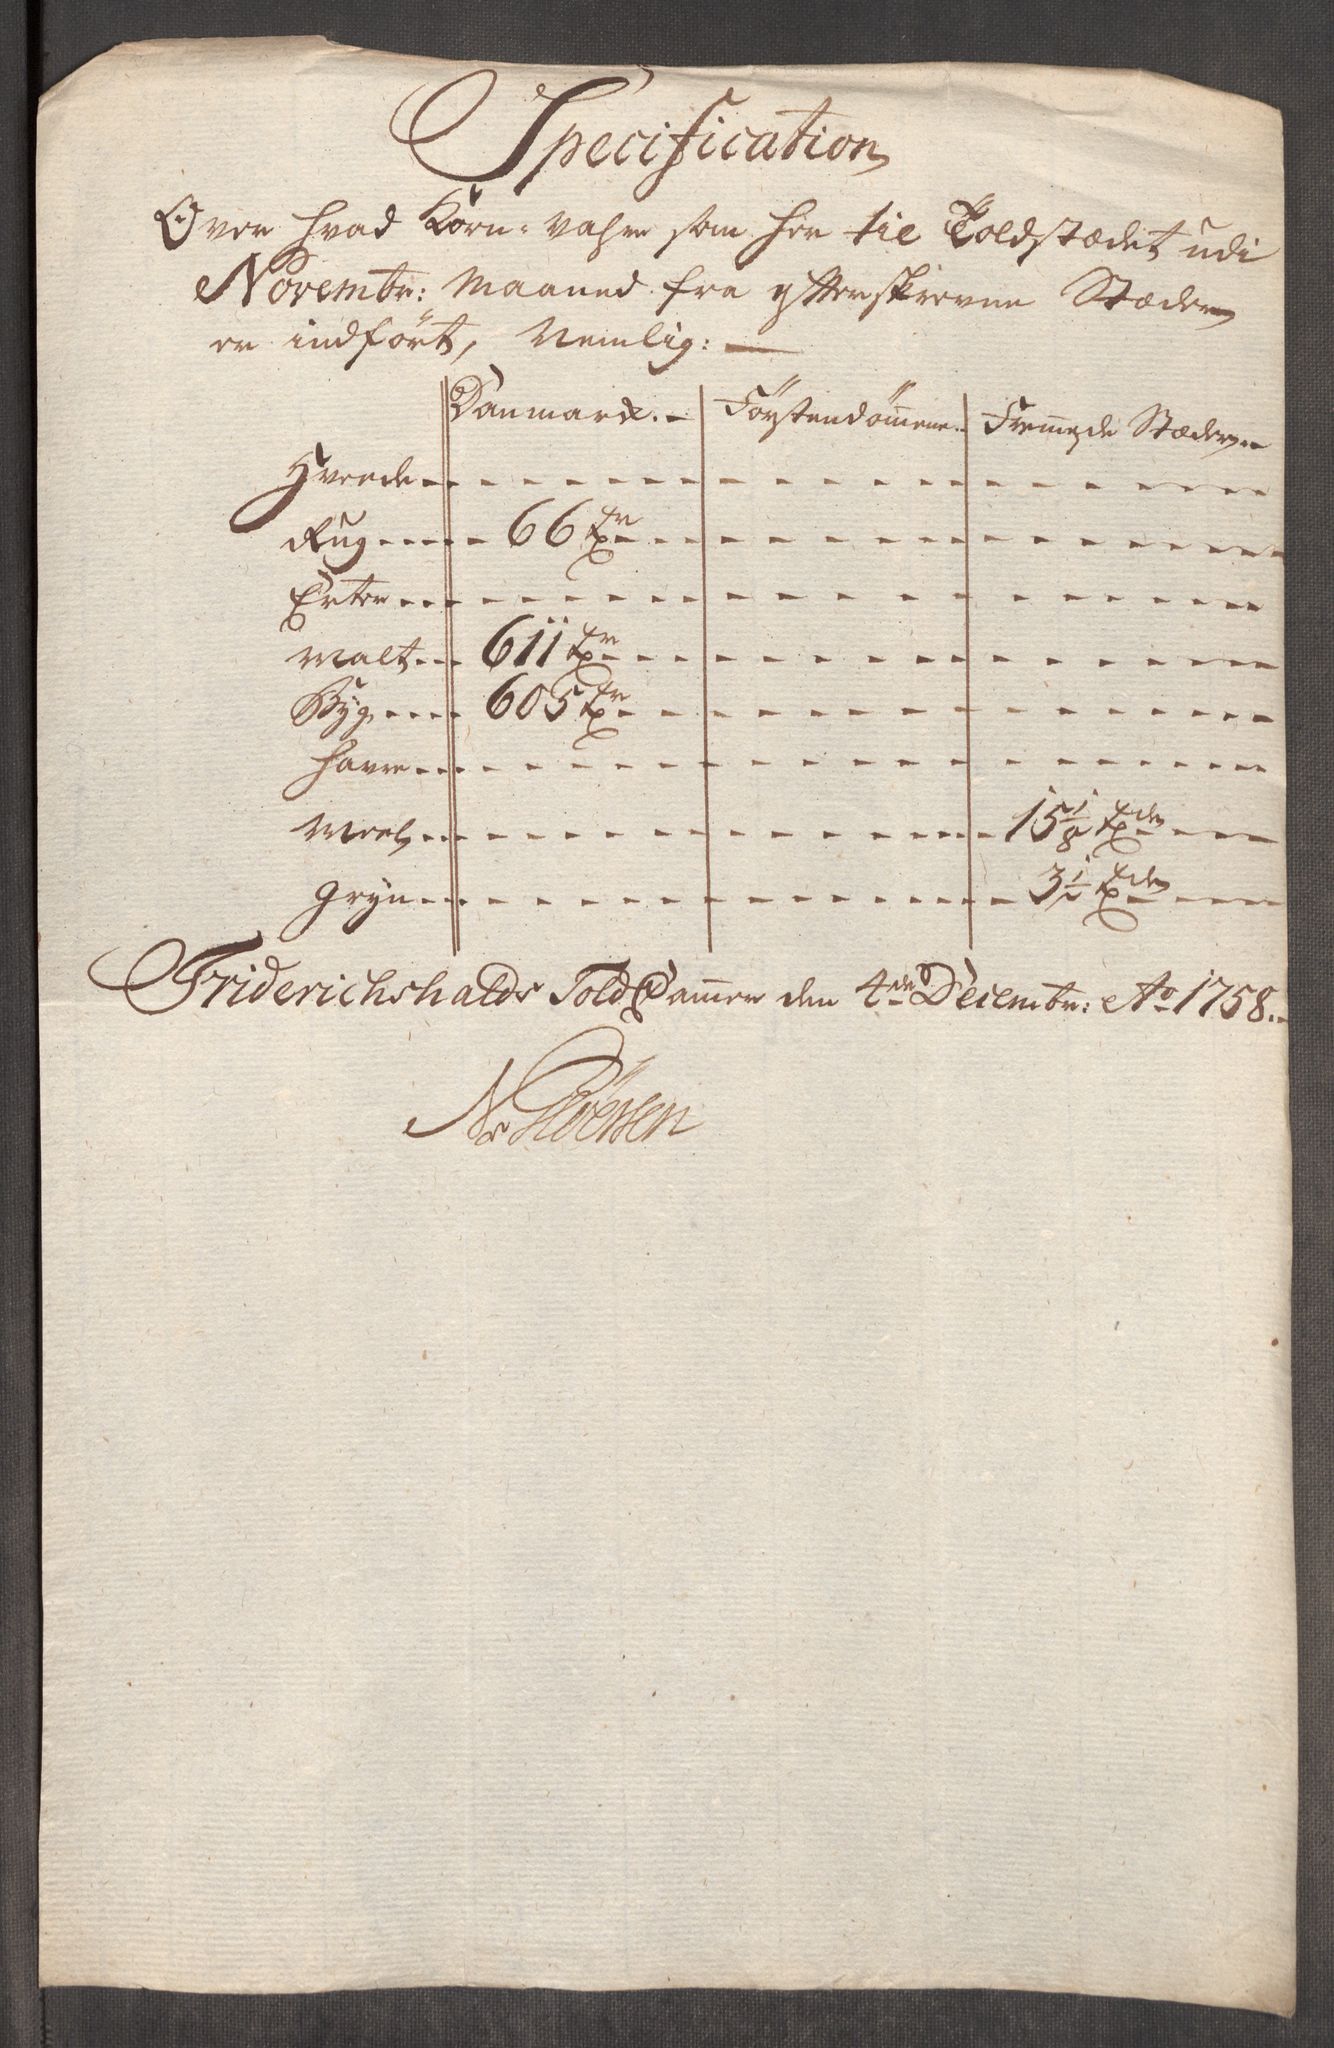 Specification
Over hvad Korn-Vahre som her til Toldstædet udi
Novembr: Maaned fra efterskrevne Stæder
er indført, Nemlig:
Danmarck. Förstendömmene. Fremmede Stæder
Hvede
Rug 66 Tr
Erter
Malt 611 Tr
Byg 605 Tr
Havre
Meel 15 1/8 Tden
Gryn 3 1/2 Tden
Friderichshalds Told Cammer den 4de Decembr: Ao 1758.